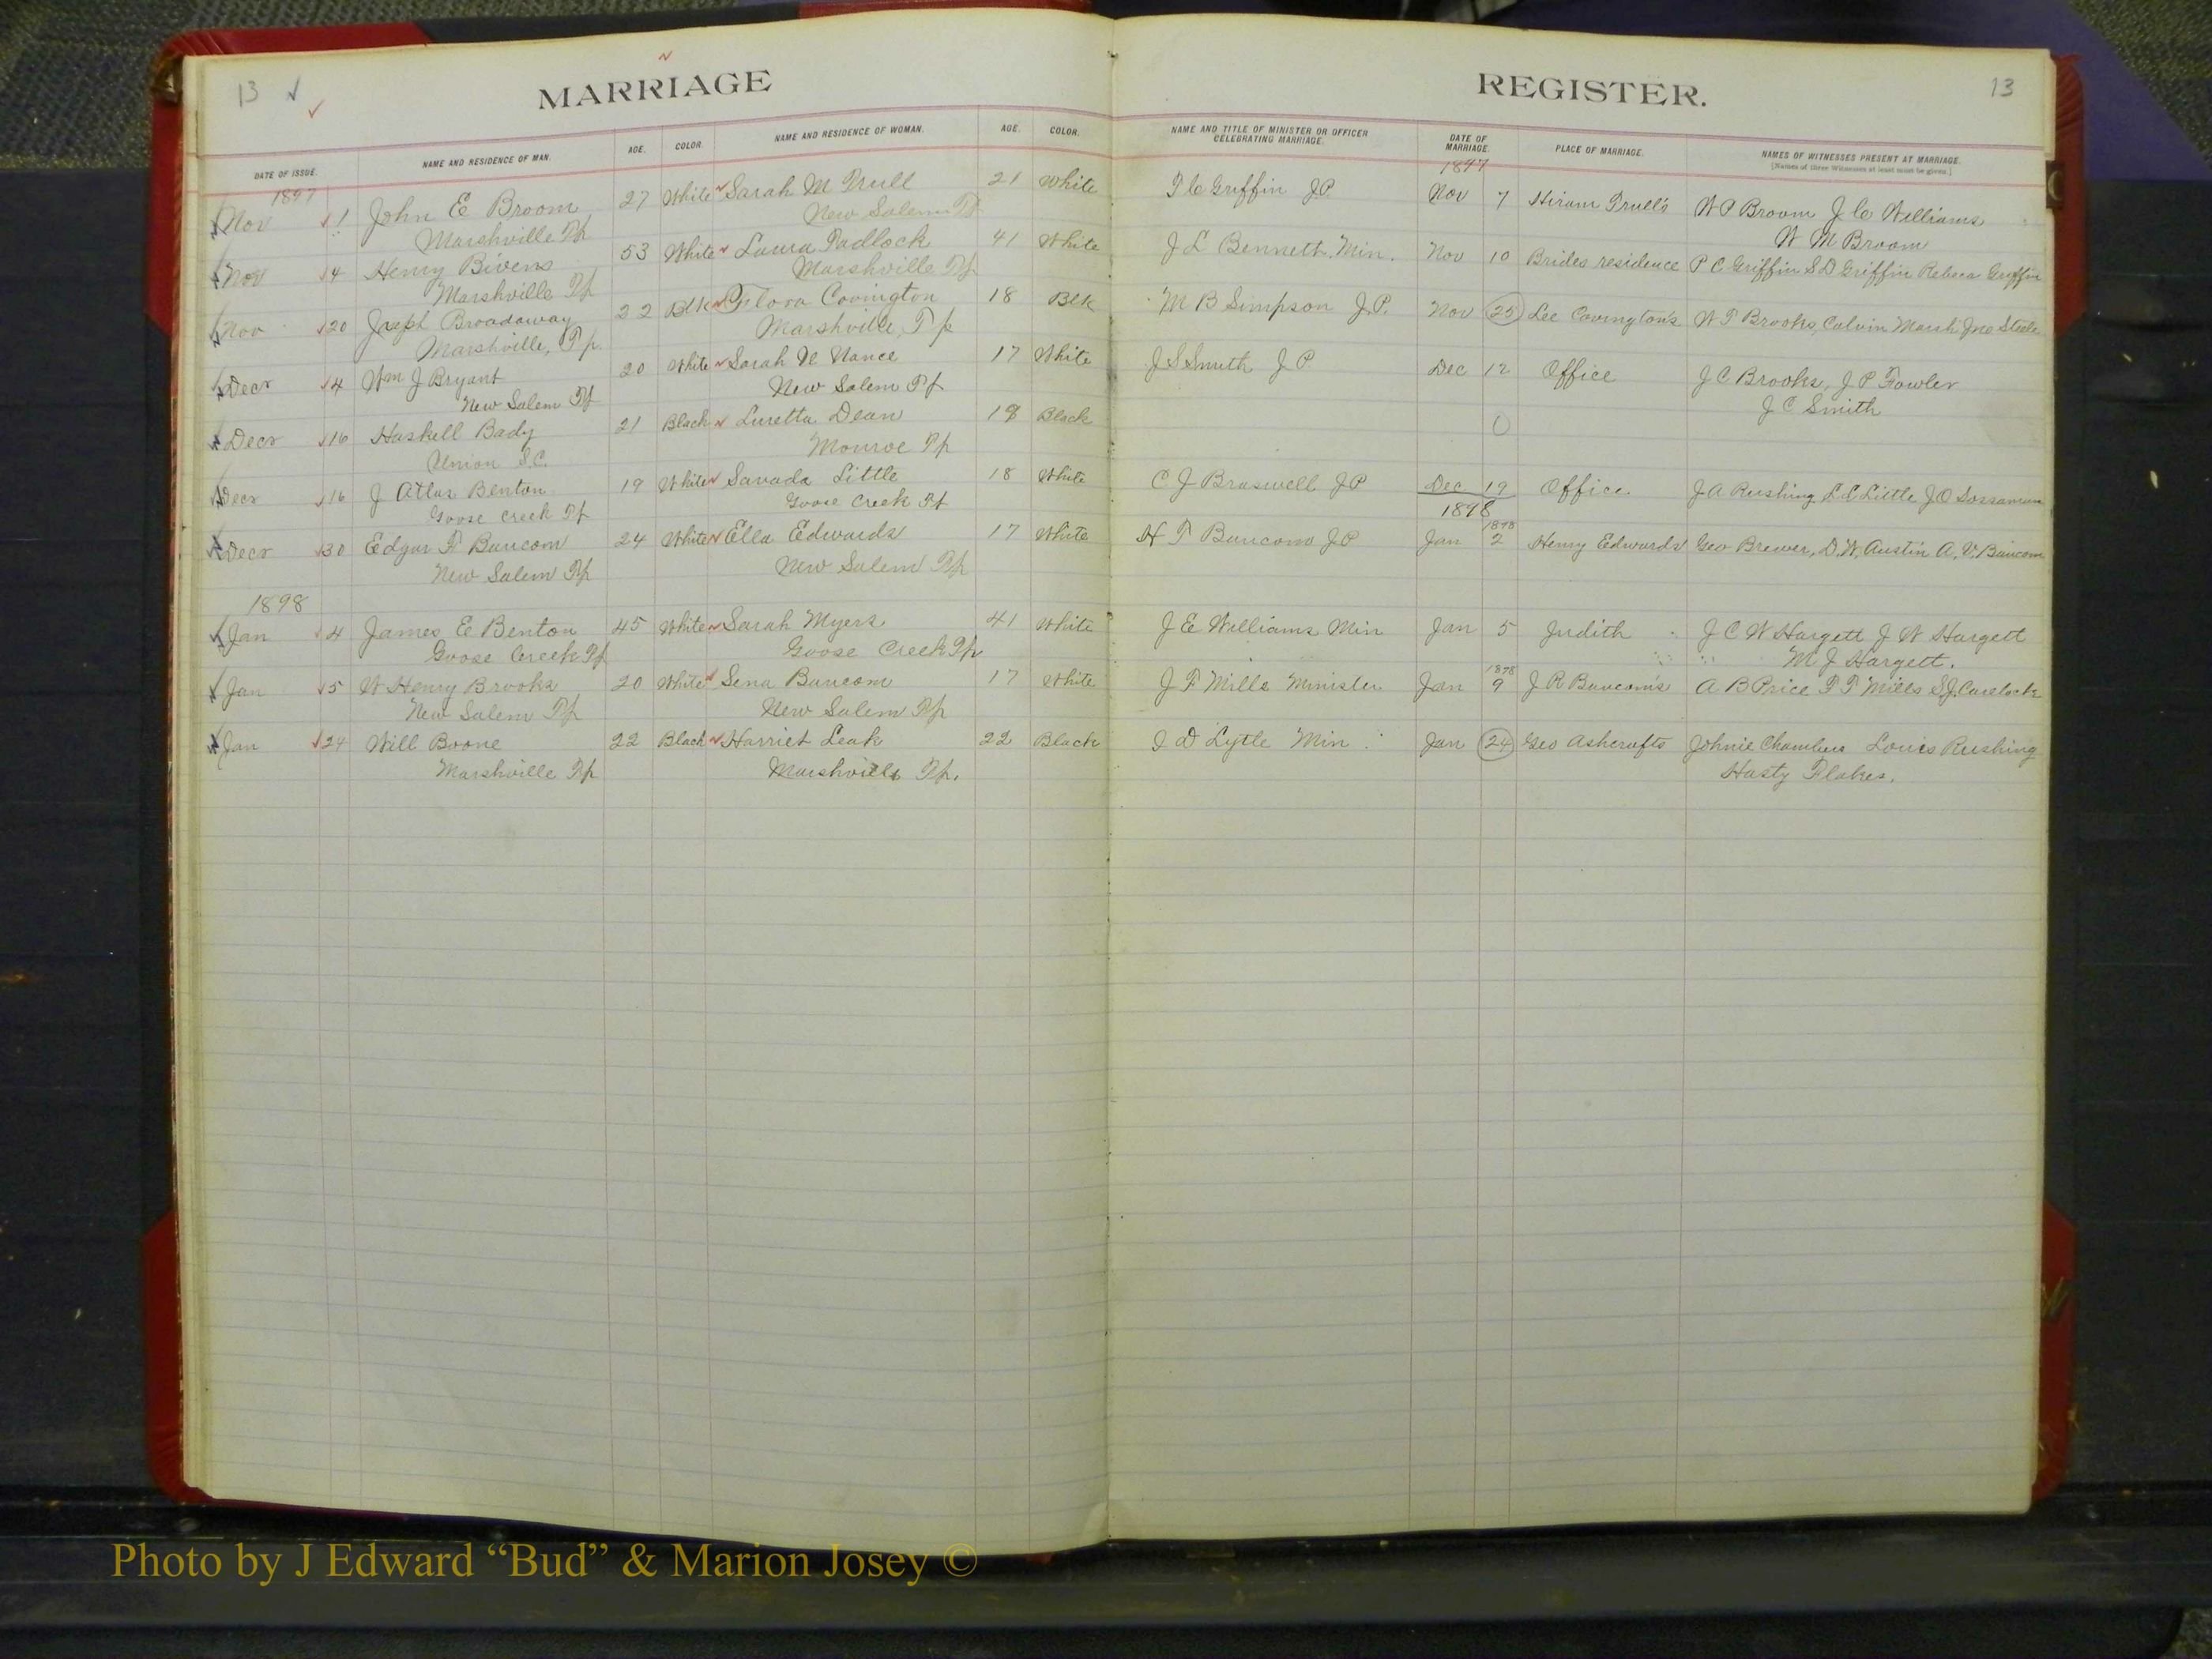 13
MARRIAGE
REGISTER.
13
DATE OF ISSUE.
NAME AND RESIDENCE OF MAN.
AGE.
COLOR.
NAME AND RESIDENCE OF WOMAN.
AGE.
COLOR.
NAME AND TITLE OF MINISTER OR OFFICER
CELEBRATING MARRIAGE.
DATE OF
MARRIAGE.
PLACE OF MARRIAGE.
NAMES OF WITNESSES PRESENT AT MARRIAGE.
[Names of three Witnesses at least must be given.]
1897
1897
Nov 1 John E Broom 27 White Sarah M Trull 21 White T C Griffin J.P. Nov 7 Hiram Trull's W P Broom J C Williams
Marshville Tp New Salem Tp W M Broom
Nov 4 Henry Bivens 53 White Laura Padlock 41 White J L Bennett, Min. Nov 10 Brides residence P C Griffin S D Griffin Rebeca Griffin
Marshville Tp Marshville Tp
Nov 20 Joseph Broadaway 22 Blk Flora Covington 18 Blk M B Simpson J.P. Nov 25 Lee Covington's W T Brooks, Calvin Marsh Jno Steele
Marshville, Tp. Marshville, Tp
Decr 4 Wm J Bryant 20 White Sarah N Nance 17 White J S Smith J P Dec 12 Office J C Brooks, J P Fowler
New Salem Tp New Salem Tp J C Smith
Decr 16 Haskell Bady 21 Black Luretta Dean 18 Black 0
Union S.C. Monroe Tp
Decr 16 J Atlas Benton 19 White Savada Little 18 White C J Braswell J P Dec 19 Office. J A Rushing L L Little J O Sossaman
Goose Creek Tp Goose Creek Tp
1898
1898
Decr 30 Edgar F Baucom 24 White Ella Edwards 17 White H T Baucom J P Jan 2 Henry Edwards Geo Brewer, D. W. Austin A. V. Baucom
New Salem Tp New Salem Tp
1898
Jan 4 James E Benton 45 White Sarah Myers 41 White J E Williams Min Jan 5 Judith J C W Hargett J W Hargett
Goose Creek Tp Goose Creek Tp M J Hargett.
1898
Jan 5 W Henry Brooks 20 White Sena Baucom 17 White J F Mills Minister Jan 9 J R Baucom's A B Price F F Mills S J Carelock
New Salem Tp New Salem Tp
Jan 24 Will Boone 22 Black Harriet Leak 22 Black I D Lytle Min. Jan 24 Geo Ashcrafts Johnie Chambers Louis Rushing
Marshville Tp Marshville Tp. Hasty Flakes.
Photo by J Edward “Bud” & Marion Josey ©